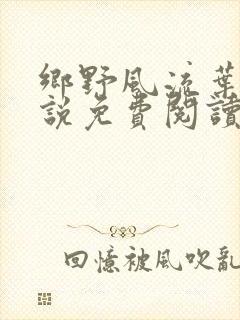 鄉野風流葉
說免費閱讀
回憶被風吹亂